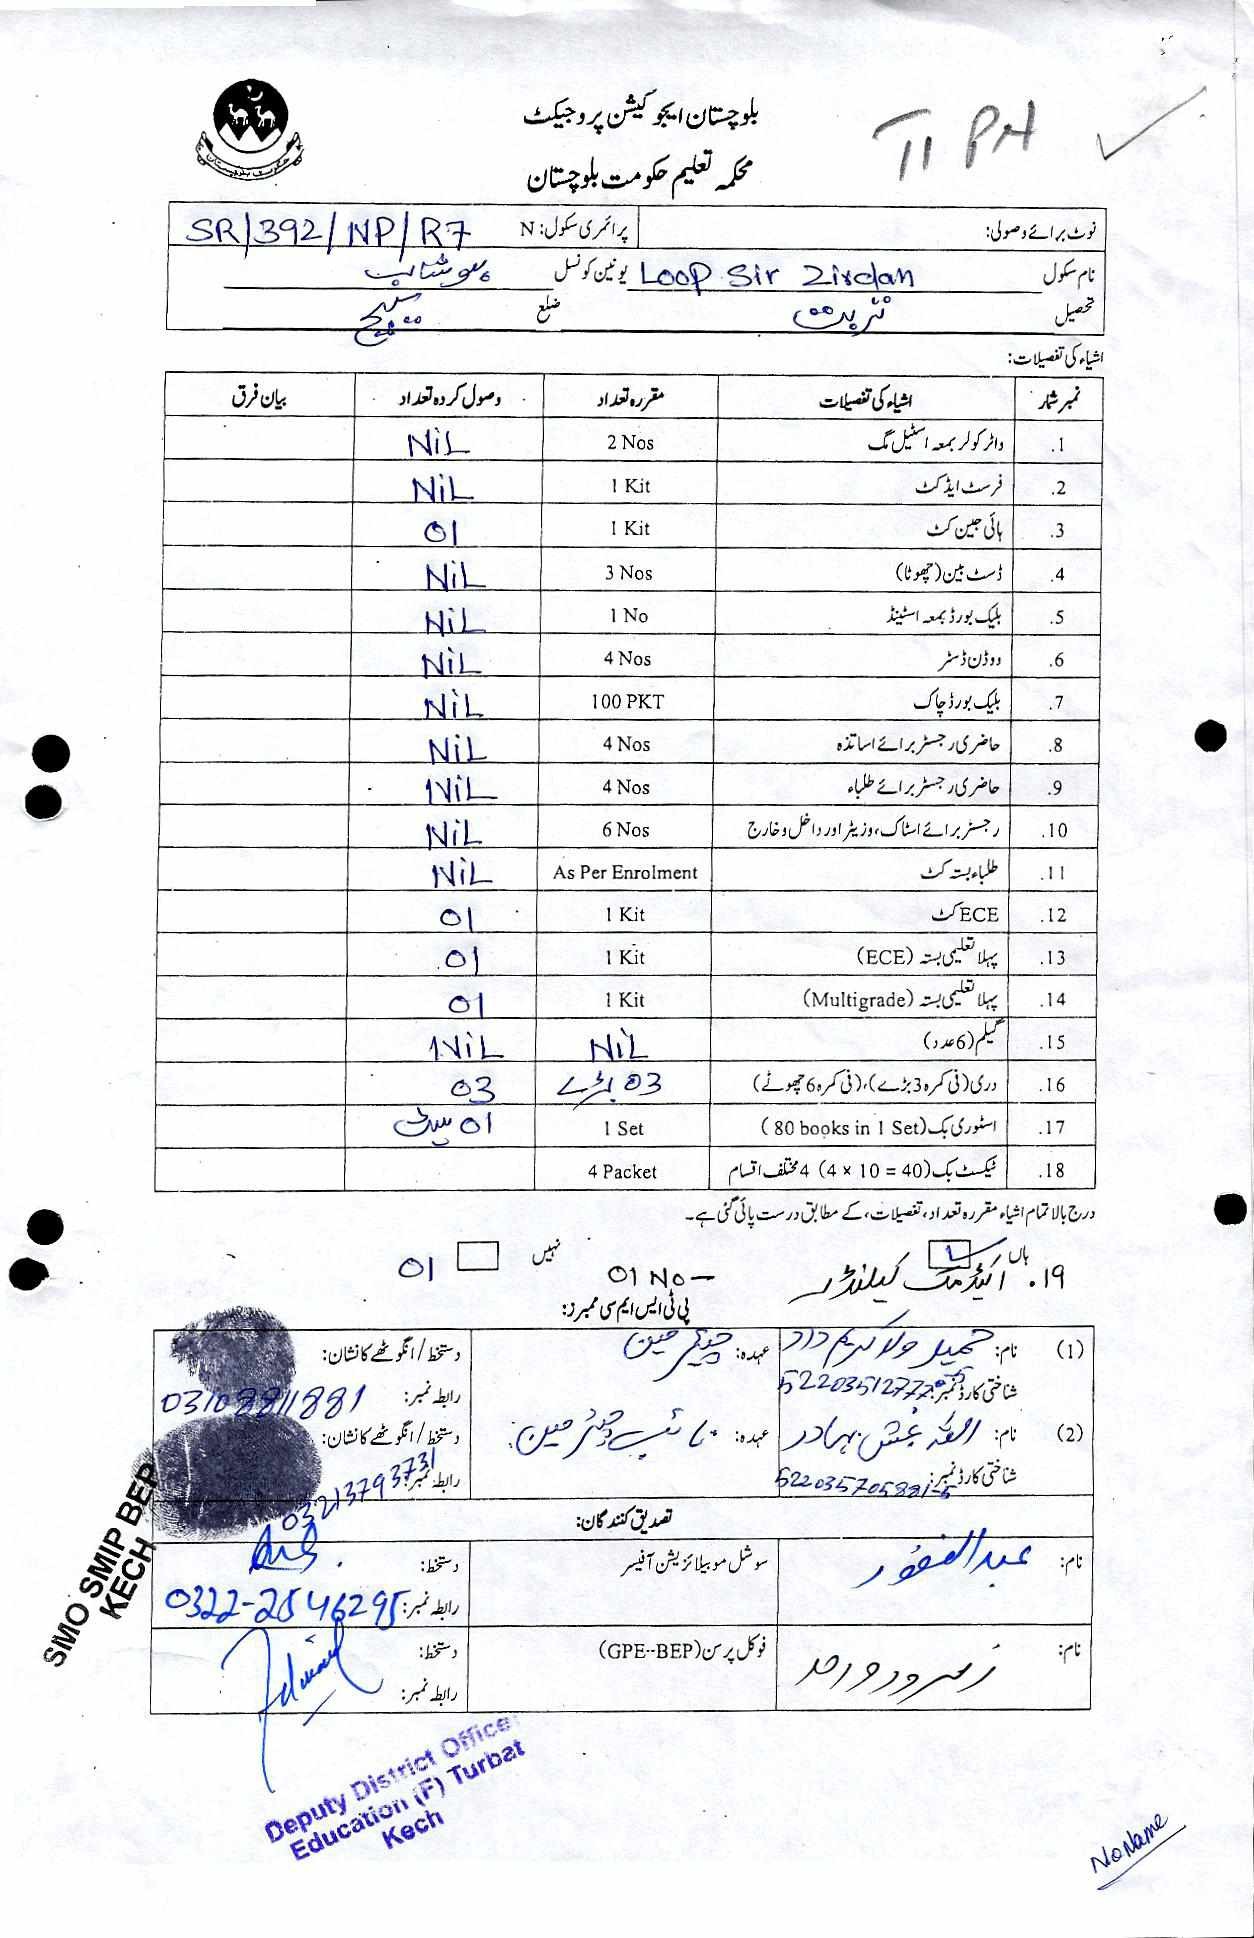 بلوچستان ایجوکیشن پروجیکٹ
محکمہ تعلیم حکومت بلوچستان
TI PH
نوٹ برائے وصولی: پرائمری سکول: N SR/392/NP/R7
نام سکول Loop Sir Zirdan یونین کونسل ہوشاب
تحصیل تربت ضلع کیچ
اشیاء کی تفصیلات:
نمبر شمار اشیاء کی تفصیلات مقررہ تعداد وصول کردہ تعداد بیان فرق
1. واٹر کولر بمعہ اسٹیل مگ 2 Nos NiL
2. فرسٹ ایڈ کٹ 1 Kit NiL
3. ہائی جین کٹ 1 Kit 01
4. ڈسٹ بین (چھوٹا) 3 Nos NiL
5. بلیک بورڈ بمعہ اسٹینڈ 1 No NiL
6. ووڈن ڈسٹر 4 Nos NiL
7. بلیک بورڈ چاک 100 PKT NiL
8. حاضری رجسٹر برائے اساتذہ 4 Nos NiL
9. حاضری رجسٹر برائے طلباء 4 Nos NiL
10. رجسٹر برائے اسٹاک، وزیٹر اور داخل و خارج 6 Nos NiL
11. طلباء بستہ کٹ As Per Enrolment NiL
12. ECE کٹ 1 Kit 01
13. پہلا تعلیمی بستہ (ECE) 1 Kit 01
14. پہلا تعلیمی بستہ (Multigrade) 1 Kit 01
15. گلیم (6 عدد) NiL NiL
16. دری (فی کمرہ 3 بڑے)، (فی کمرہ 6 چھوٹے) 03 بڑے 03
17. اسٹوری بک (80 books in 1 Set) 1 Set 01 سیٹ
18. ٹیکسٹ بک (4 × 10 = 40) 4 مختلف اقسام 4 Packet
درج بالا تمام اشیاء مقررہ تعداد، تفصیلات، کے مطابق درست پائی گئی ہے۔
ہاں نہیں
19. اکیڈمک کیلنڈر 01 No – 01
پی ٹی ایس ایم سی ممبرز:
(1) نام: حمید ولد کریم داد عہدہ: چیئرمین دستخط / انگوٹھے کا نشان:
شناختی کارڈ نمبر: رابطہ نمبر: 03108811881
(2) نام: اللہ بخش بہادر عہدہ: نائب چیئرمین دستخط / انگوٹھے کا نشان:
شناختی کارڈ نمبر: 522035705881-5 رابطہ نمبر: 03213793731
تصدیق کنندگان:
نام: عبدالغفور سوشل موبیلائزیشن آفیسر دستخط:
رابطہ نمبر: 0322-2546295
نام: فوکل پرسن (GPE--BEP) دستخط:
رابطہ نمبر:
SMO SMIP BEP
KECH
Deputy District Officer
Education (F) Turbat
Kech
No Name